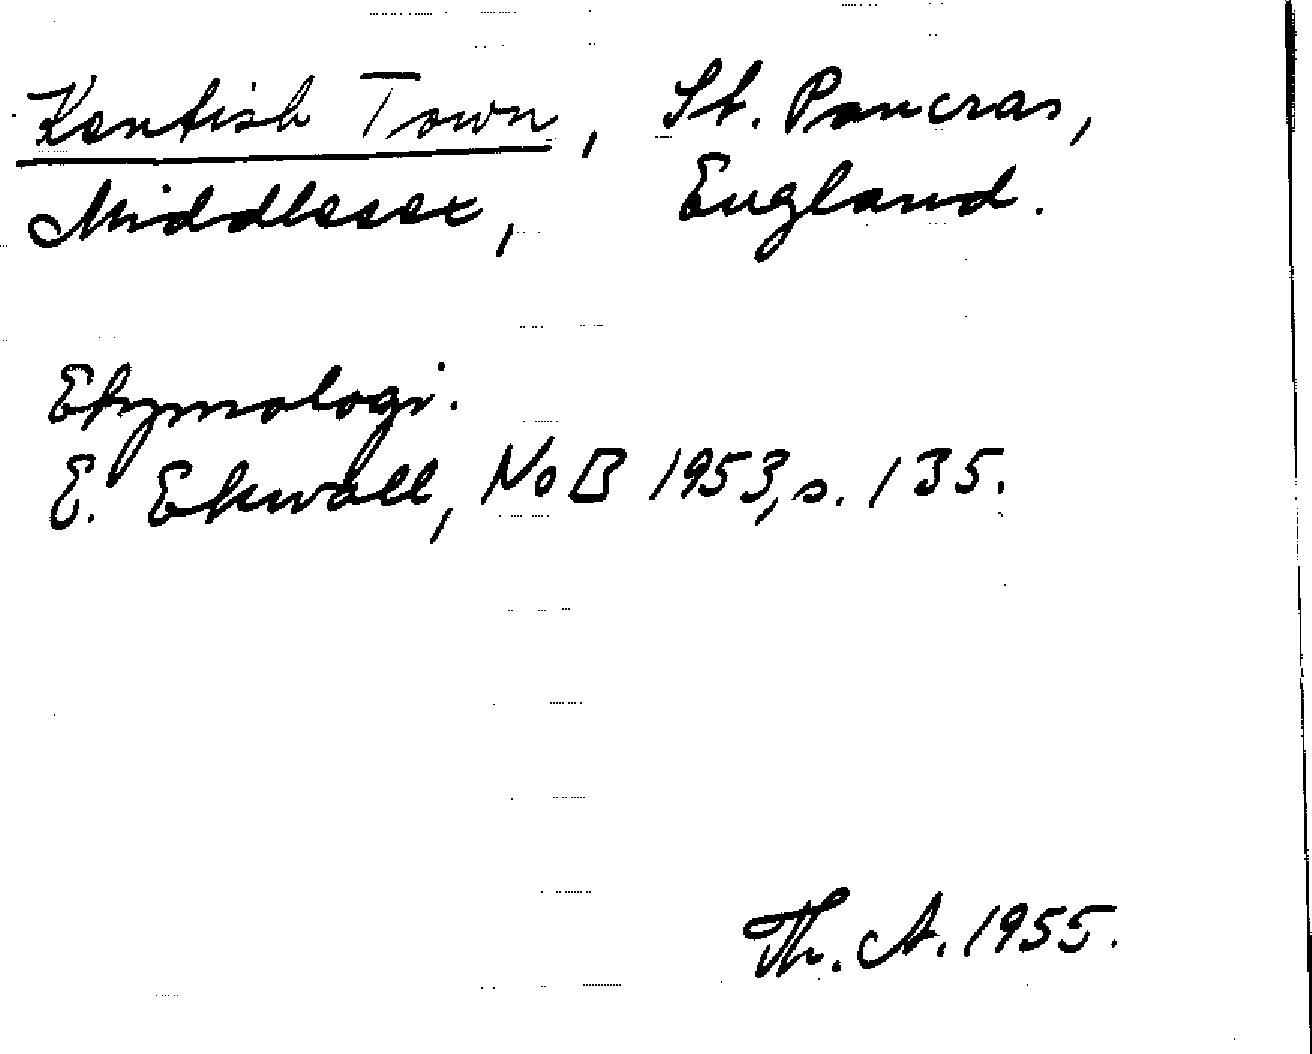 Kentish Town, St. Pancras,
Middlesex, England.
Etymologi.
E. Ekwall, NoB 1953, s. 135.
Th. A. 1955.